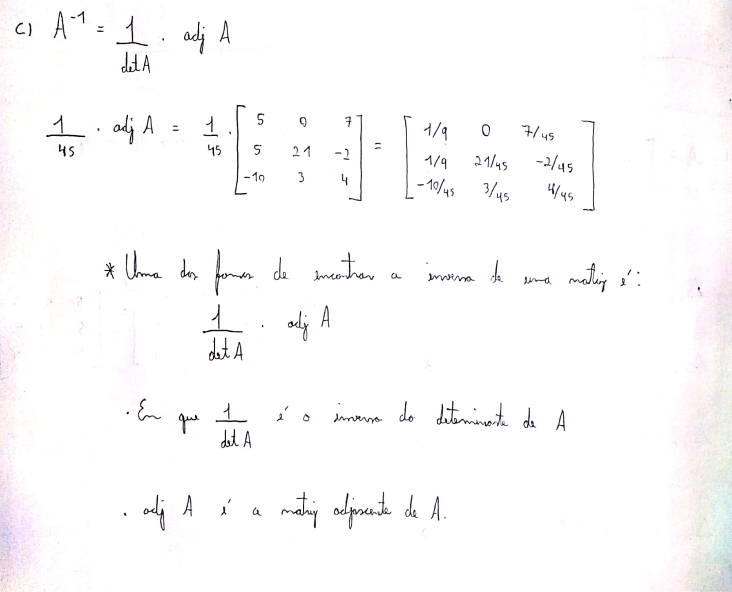 c) A⁻¹ = 1/det A . adj A
1/45 . adj A = 1/45 . [5 0 7; 5 21 -2; -10 3 4] = [1/9 0 7/45; 1/9 21/45 -2/45; -10/45 3/45 4/45]
* Uma das formas de encontrar a inversa de uma matriz é:
1/det A . adj A
. Em que 1/det A é o inverso do determinante de A
. adj A é a matriz adjascente de A.